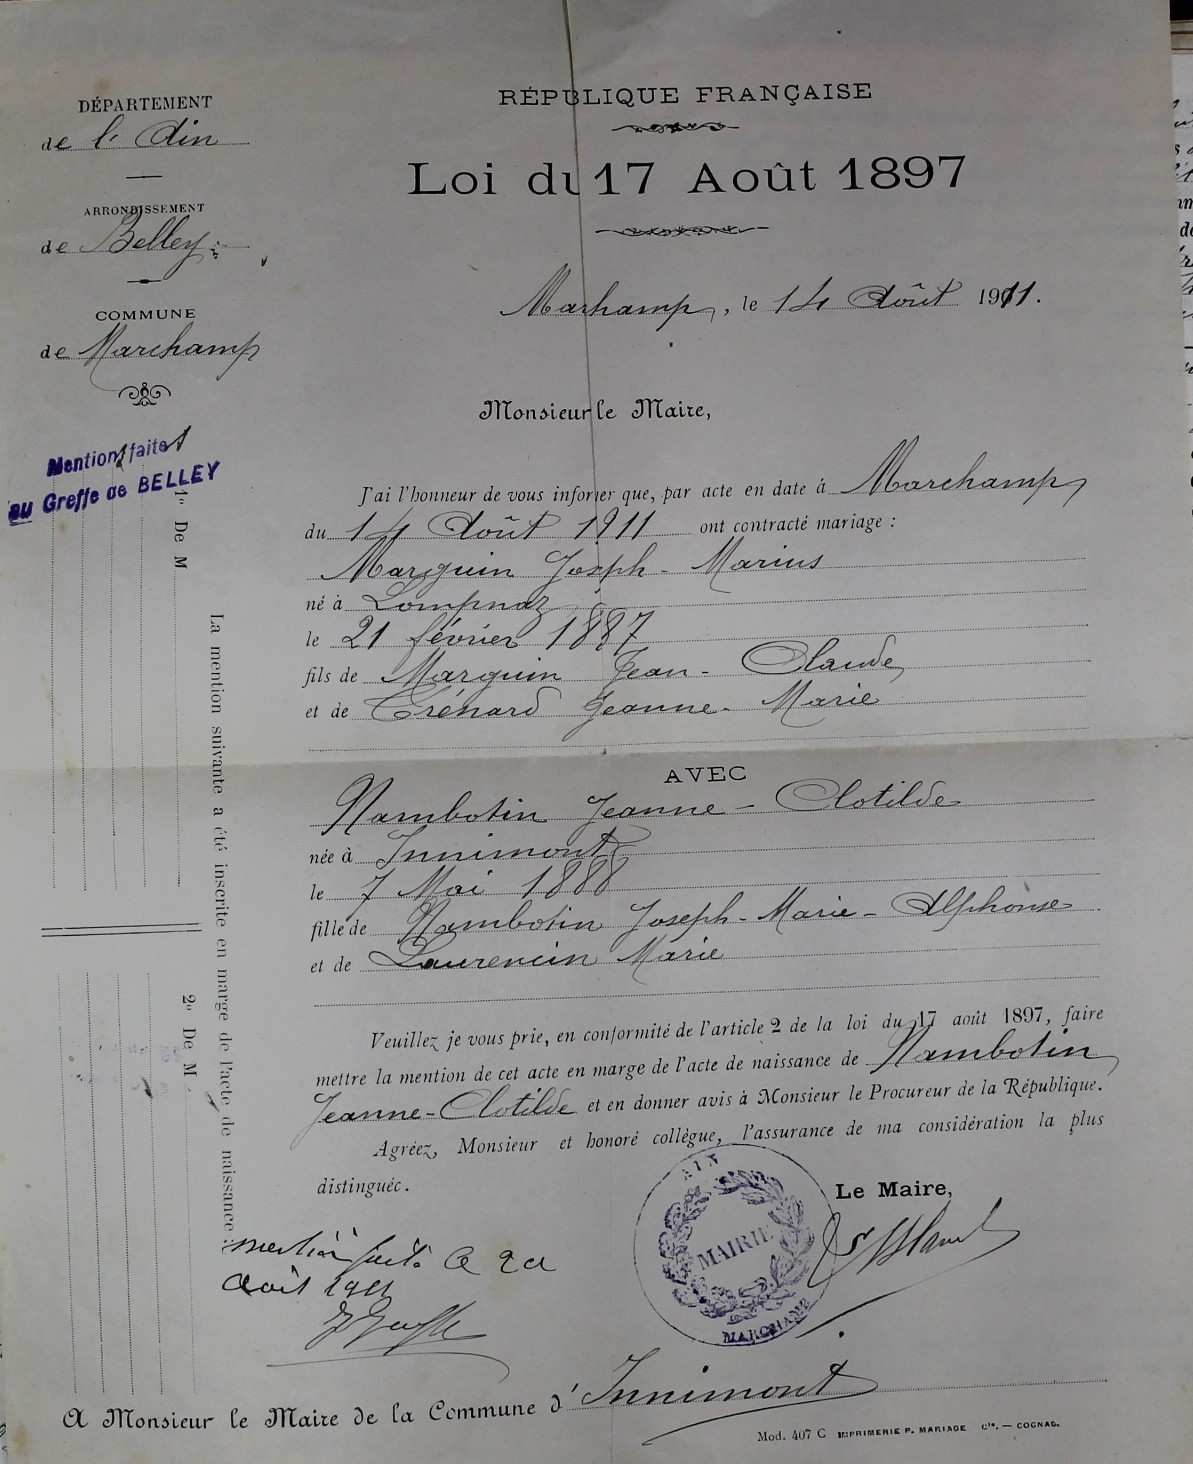 DÉPARTEMENT
de l'Ain
ARRONDISSEMENT
de Belley
COMMUNE
de Marchamp
Mention faite
au Greffe de BELLEY
1º De M
La mention suivante a été inscrite en marge de l'acte de naissance :
2º De M
RÉPUBLIQUE FRANÇAISE
Loi du 17 Août 1897
Marchamp, le 14 Août 1911.
Monsieur le Maire,
J'ai l'honneur de vous informer que, par acte en date à Marchamp
du 14 Août 1911 ont contracté mariage :
Marguin Joseph-Marius
né à Lompnaz
le 21 février 1887
fils de Marguin Jean-Claude
et de Trénard Jeanne-Marie
AVEC
Nambotin Jeanne-Clotilde
née à Innimont
le 7 Mai 1888
fille de Nambotin Joseph-Marie-Alphonse
et de Laurencin Marie
Veuillez je vous prie, en conformité de l'article 2 de la loi du 17 août 1897, faire
mettre la mention de cet acte en marge de l'acte de naissance de Nambotin
Jeanne-Clotilde et en donner avis à Monsieur le Procureur de la République.
Agréez, Monsieur et honoré collègue, l'assurance de ma considération la plus
distinguée.
AIN
MAIRIE
MARCHAMP
Le Maire,
mention faite le
Août 1911
A Monsieur le Maire de la Commune d'Innimont
Mod. 407 C IMPRIMERIE P. MARIAGE Cie. — COGNAC.